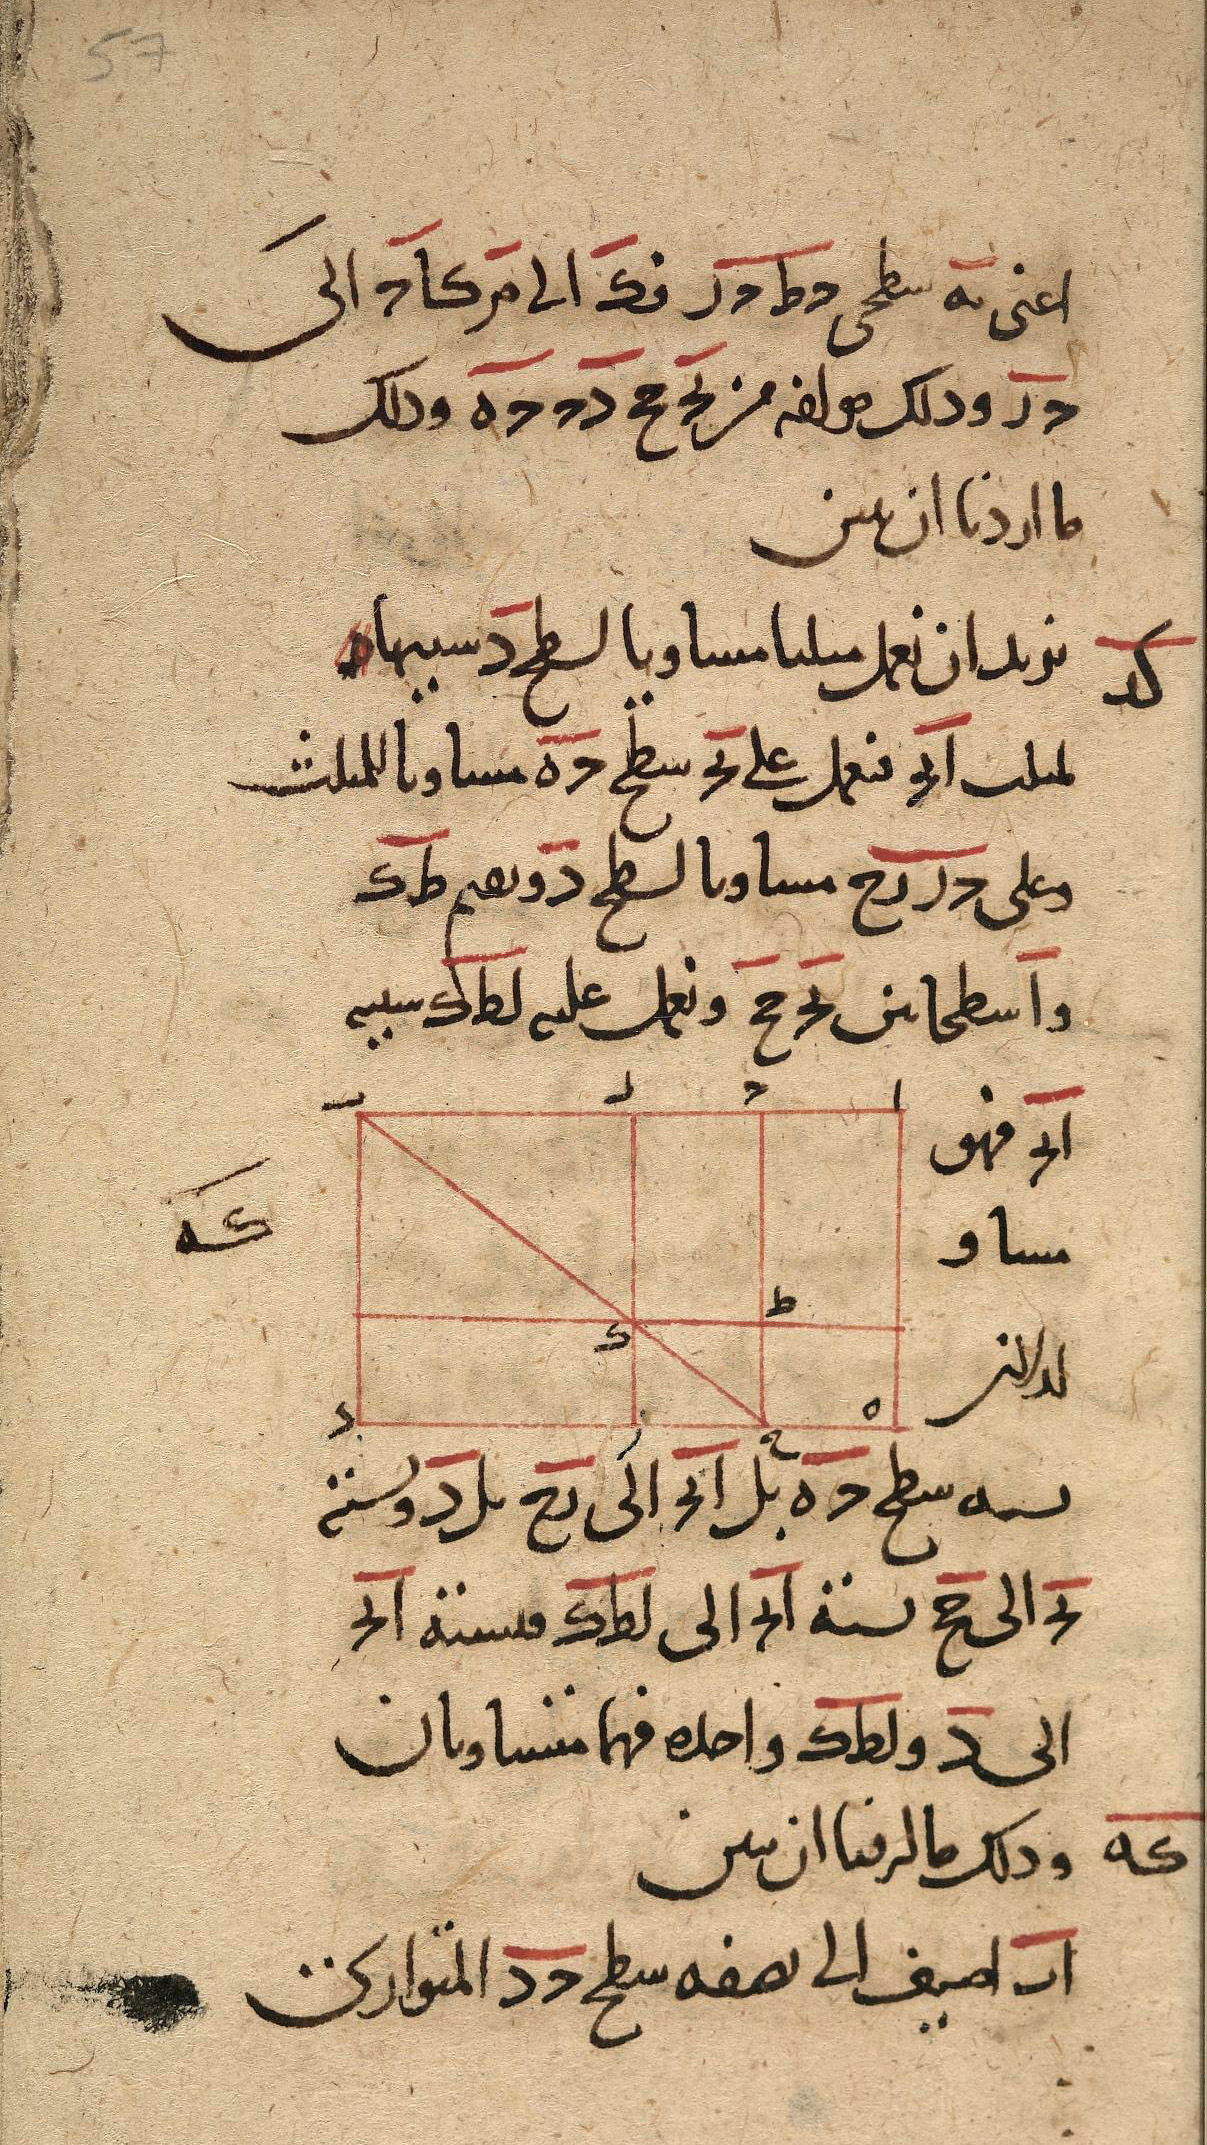 57
اعنى نه سطحى حط حر فك الى م كا ح الى
حر وذلك مولفه من بح حح دح حه وذلك
ما اردنا ان نبين
كد
نريد ان نعمل مثلثا مساويا لسطح د شبيها
لمثلث ابح فنعمل على بح سطح حه مساويا للمثلث
وعلى حر رح مساويا لسطح د وبعم طك
واسطا بين بح حح ونعمل عليه لطك شبيه
ابح فهو
مساو
لد لان
ا ح ل ب
ط ك
كه
د ر ح ه
نسبه سطح حه بل ابح الى رح بل د ونسبة
بح الى حح نسبة ابح الى لطك فنسبة ابح
الى د ولطك واحده فهما متساويان
كه
وذلك ما اردنا ان نبين
اب اضيف الى نصفه سطح حد المتوازى